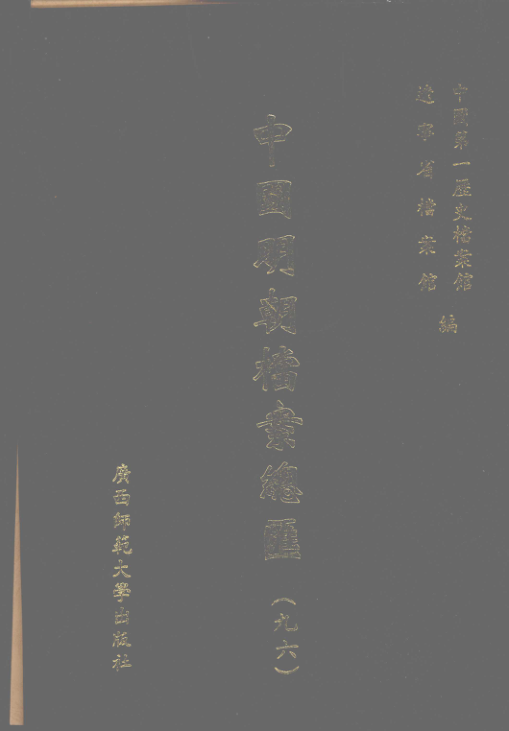 中國第一歷史檔案館
遼寧省檔案館
編
中國明朝檔案總匯
（九六）
廣西師範大學出版社